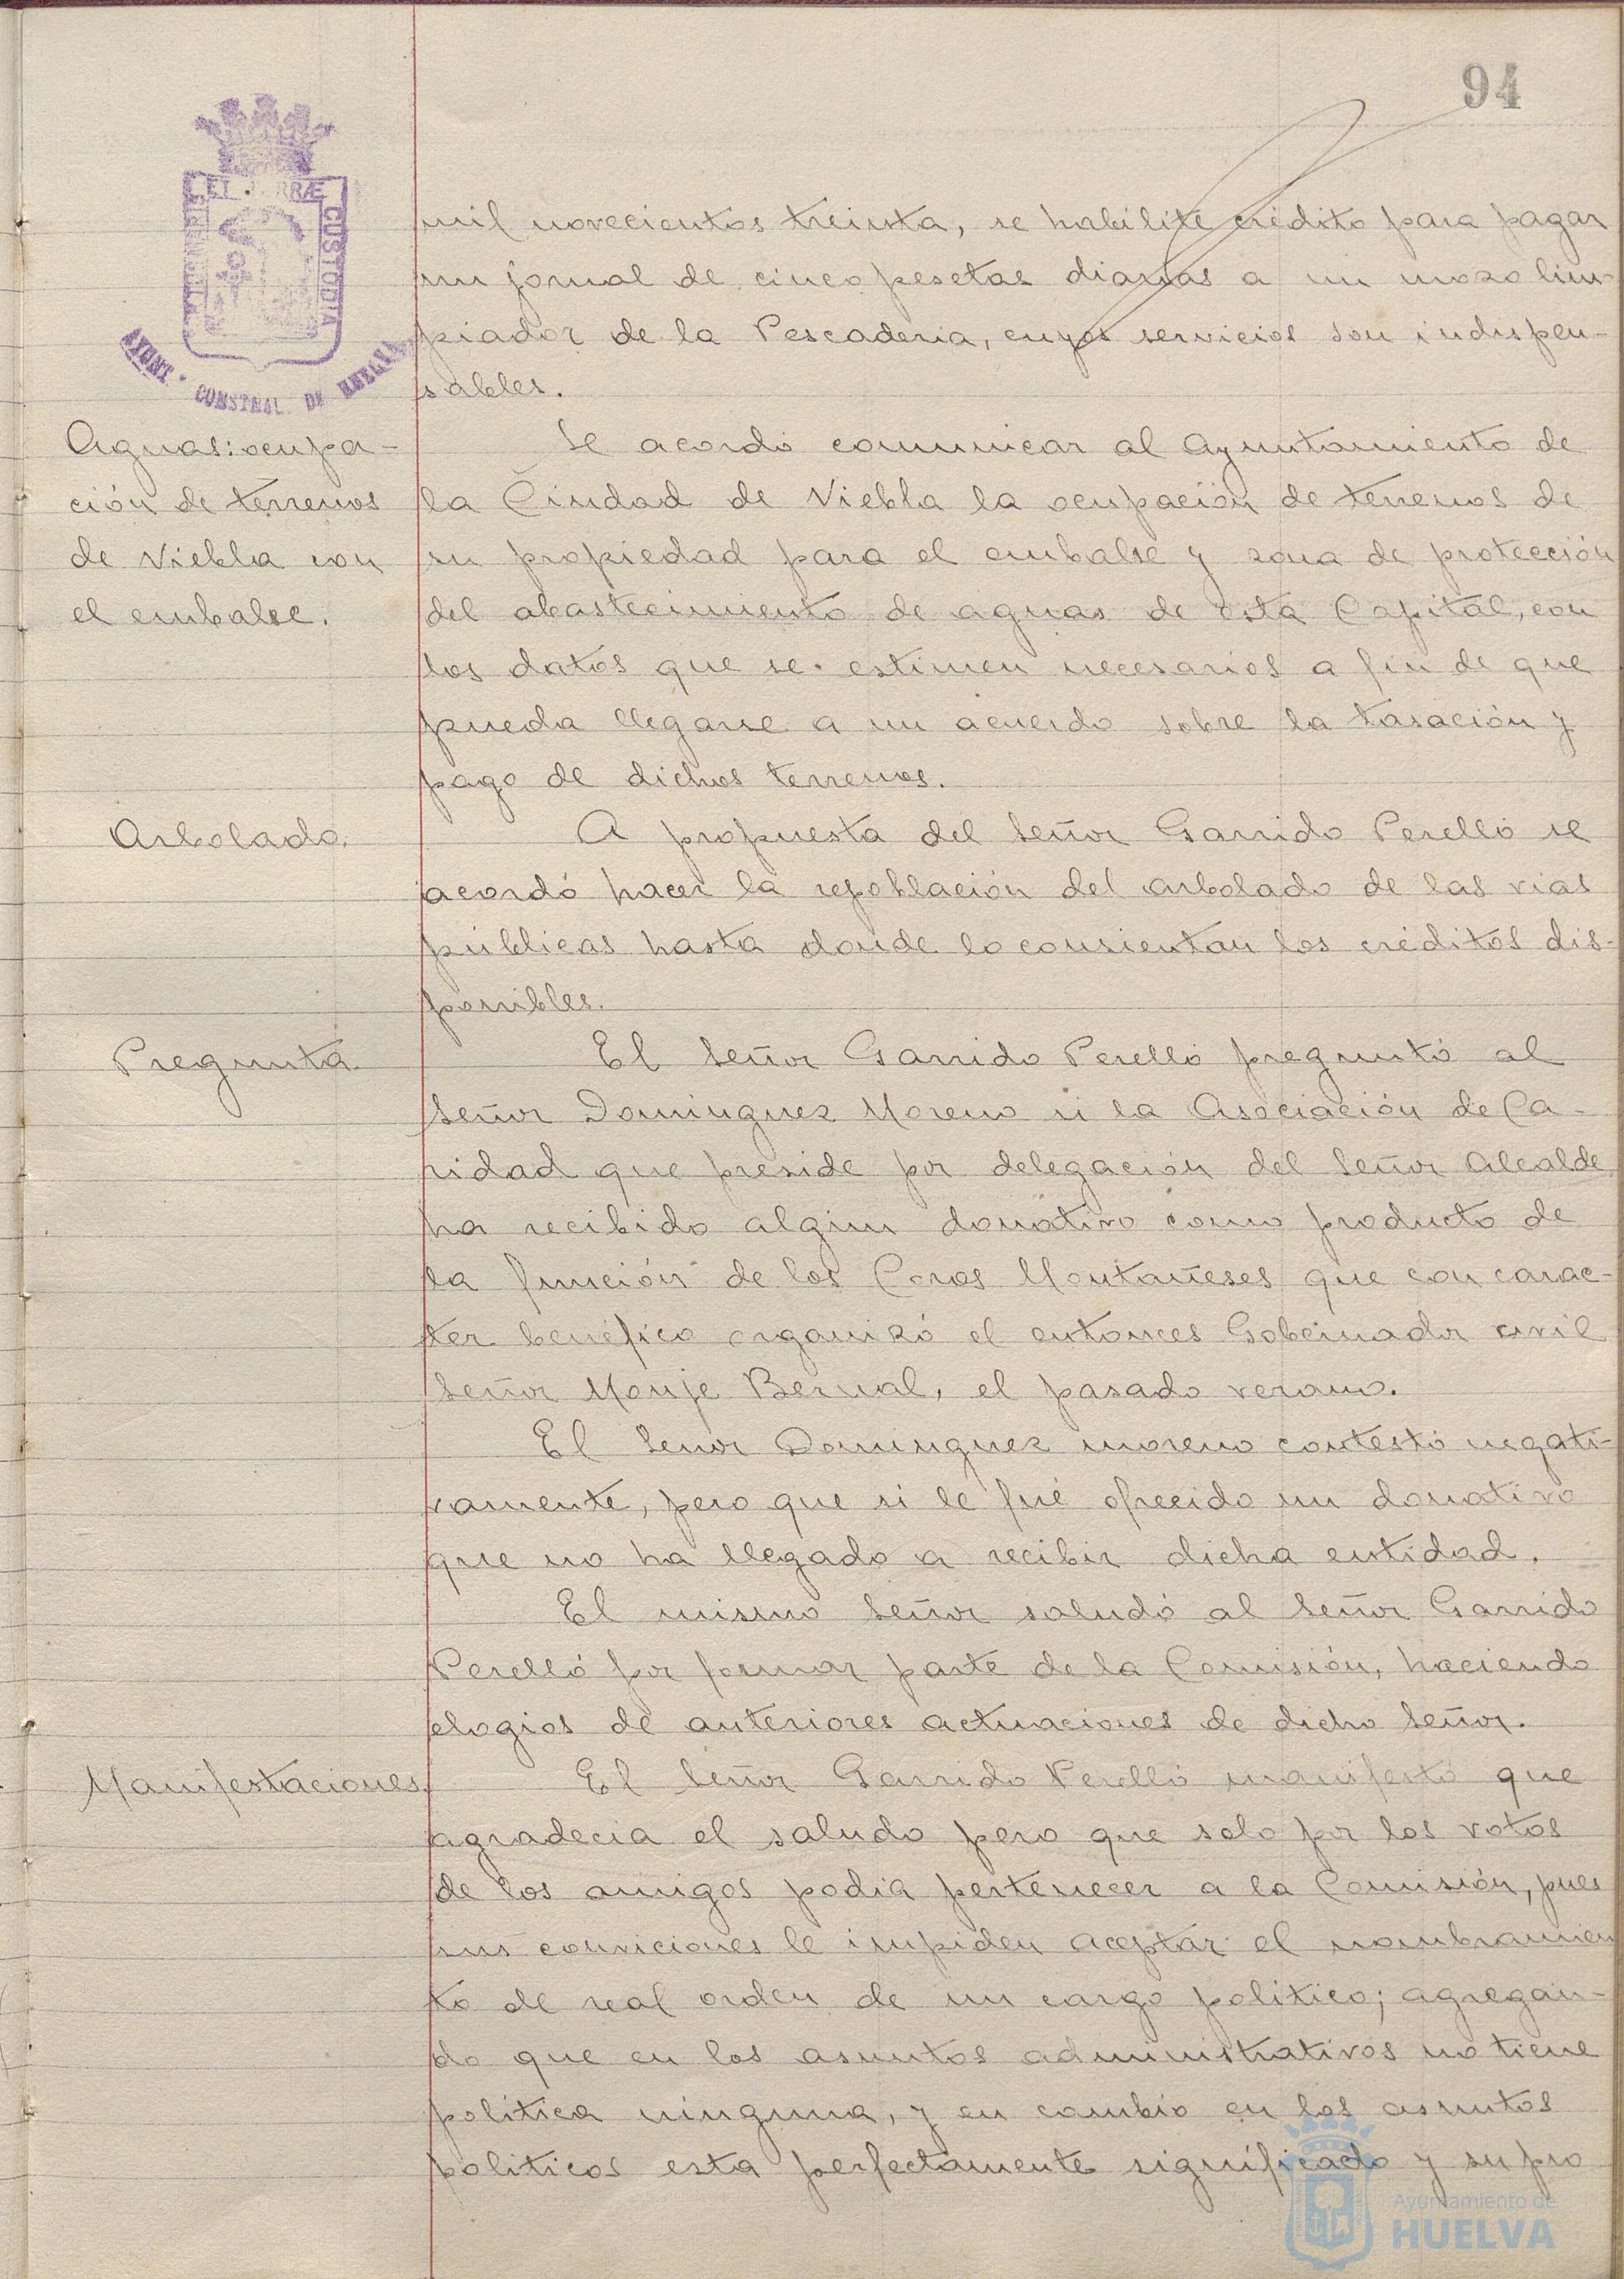 94
ET TERRÆ
CUSTODIA
AYUNT. CONSTNAL DE HUELVA
mil novecientos treinta, se habilite crédito para pagar
un jornal de cinco pesetas diarias a un mozo lim-
piador de la Pescaderia, cuyos servicios son indispen-
sables.
Aguas: ocupa-
ción de terrenos
de Niebla con
el embalse.
Se acordó comunicar al Ayuntamiento de
la Ciudad de Niebla la ocupación de terrenos de
su propiedad para el embalse y zona de protección
del abastecimiento de aguas de esta Capital, con
los datos que se estimen necesarios a fin de que
pueda llegarse a un acuerdo sobre la tasación y
pago de dichos terrenos.
Arbolado.
A propuesta del Señor Garrido Perelló se
acordó hacer la repoblación del arbolado de las vias
públicas hasta donde lo consientan los créditos dis-
ponibles.
Pregunta.
El Señor Garrido Perelló preguntó al
Señor Dominguez Moreno si la Asociación de Ca-
ridad que preside por delegación del Señor Alcalde
ha recibido algun donativo como producto de
la función de los Coros Montañeses que con carac-
ter benéfico organizó el entonces Gobernador civil
Señor Monje Bernal, el pasado verano.
El Señor Dominguez Moreno contestó negati-
vamente, pero que si le fué ofrecido un donativo
que no ha llegado a recibir dicha entidad.
El mismo Señor saludó al Señor Garrido
Perelló por formar parte de la Comisión, haciendo
elogios de anteriores actuaciones de dicho Señor.
Manifestaciones.
El Señor Garrido Perelló manifestó que
agradecia el saludo pero que solo por los votos
de los amigos podia pertenecer a la Comisión, pues
sus conviciones le impiden aceptar el nombramien
to de real orden de un cargo politico; agregan-
do que en los asuntos administrativos no tiene
politica ninguna, y en cambio en los asuntos
politicos esta perfectamente significado y su pro
Ayuntamiento de
HUELVA